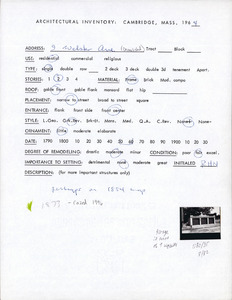 ARCHITECTURAL INVENTORY: CAMBRIDGE, MASS, 196
ADDRESS: 9 Webster Ave Tract Block
USE: residential commercial religious
TYPE: single double row 2 deck 3 deck double 3d tenement Apart.
STORIES: 1 2 3 4 MATERIAL: frame brick Mod. compo
ROOF: gable front gable flank mansard flat hip
PLACEMENT: narrow to street broad to street square
ENTRANCE: flank front side front center
STYLE: L.Geo. Gk.Rv. Brkt. Mans. Med. Q.A. C.Rev. Name:
ORNAMENT: little moderate elaborate
DATE: 1790 1800 10 20 30 40 50 60 70 80 90 1900 10 20 30
DEGREE OF REMODELING: drastic moderate minor CONDITION: poor fair excel.
IMPORTANCE TO SETTING: detrimental none moderate great INITIALED RHN
DESCRIPTION: (for more important structures only)
on 1854 map
1873